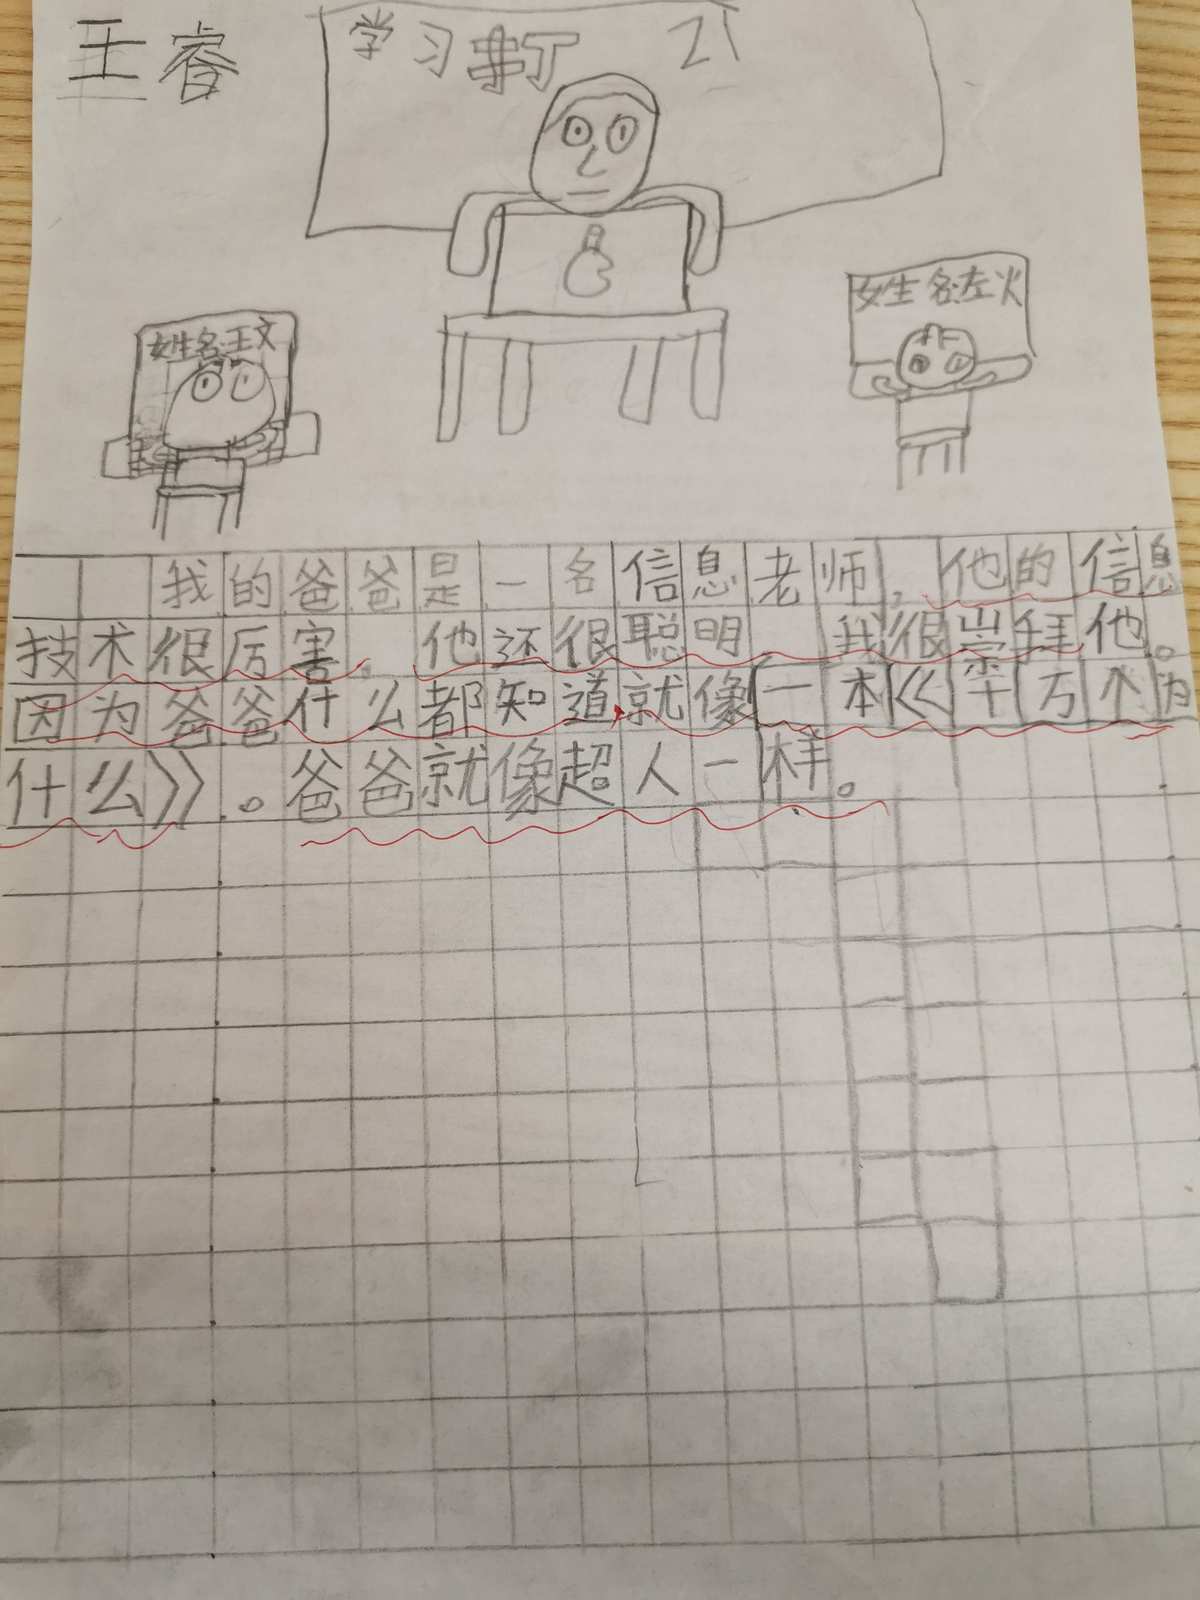 王睿
学习
姓名:左火
姓名:王文
我的爸爸是一名信息老师,他的信息
技术很厉害。他还很聪明 我很崇拜他。
因为爸爸什么都知道,就像一本《十万个为
什么》。爸爸就像超人一样。